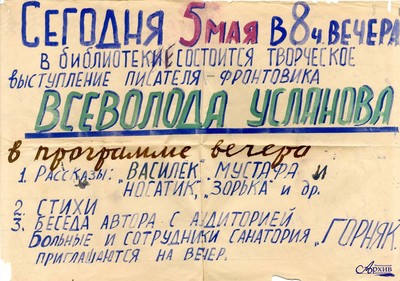 СЕГОДНЯ 5 МАЯ В 8 Ч. ВЕЧЕРА
В БИБЛИОТЕКЕ СОСТОИТСЯ ТВОРЧЕСКОЕ
ВЫСТУПЛЕНИЕ ПИСАТЕЛЯ-ФРОНТОВИКА
ВСЕВОЛОДА УСЛАНОВА
в программе вечера
1. РАССКАЗЫ: „ВАСИЛЕК", МУСТАФА И
НОСАТИК, „ЗОРЬКА" И ДР.
2. СТИХИ
3. БЕСЕДА АВТОРА С АУДИТОРИЕЙ
БОЛЬНЫЕ И СОТРУДНИКИ САНАТОРИЯ „ГОРНЯК"
ПРИГЛАШАЮТСЯ НА ВЕЧЕР.
Архив